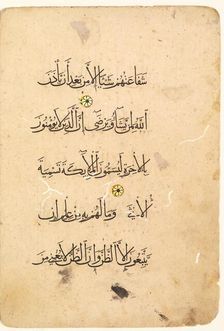 شفاعتهم شيئا الا من بعد ان ياذن
الله لمن يشآء ويرضى ان الذين لا يؤمنون
بالاخرة ليسمون الملائكة تسمية
الانثى وما لهم به من علم ان
يتبعون الا الظن وان الظن لا يغنى من